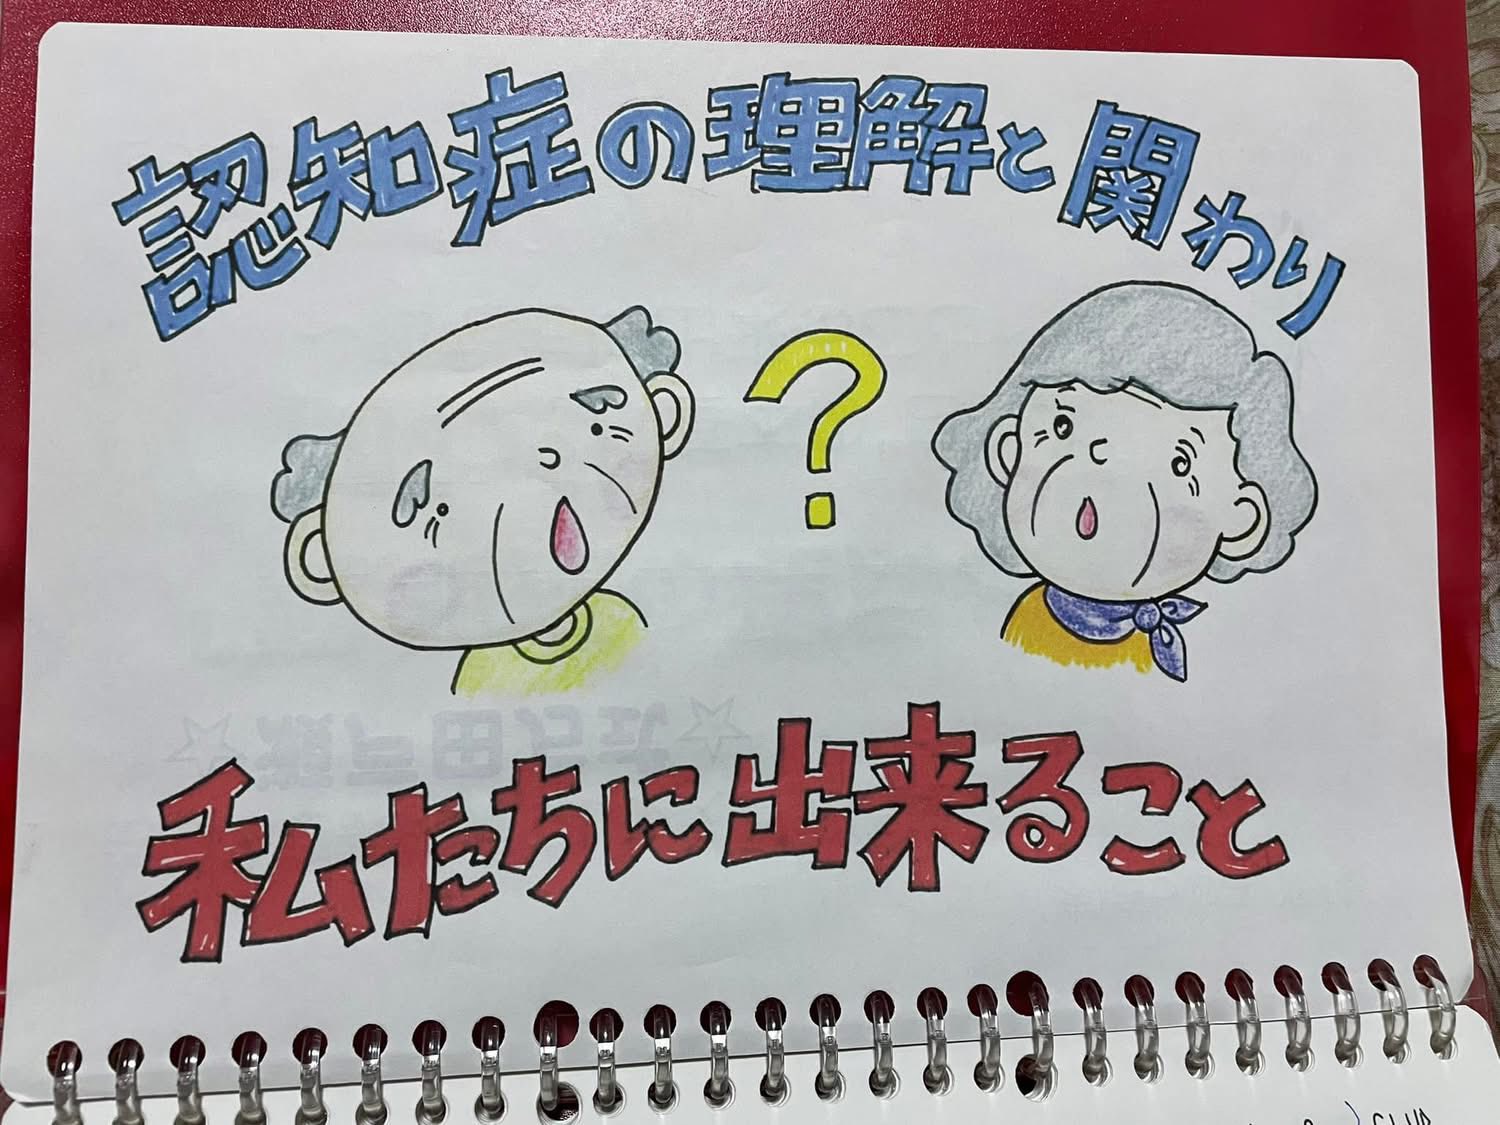 認知症の理解と関わり
?
私たちに出来ること
CLUB